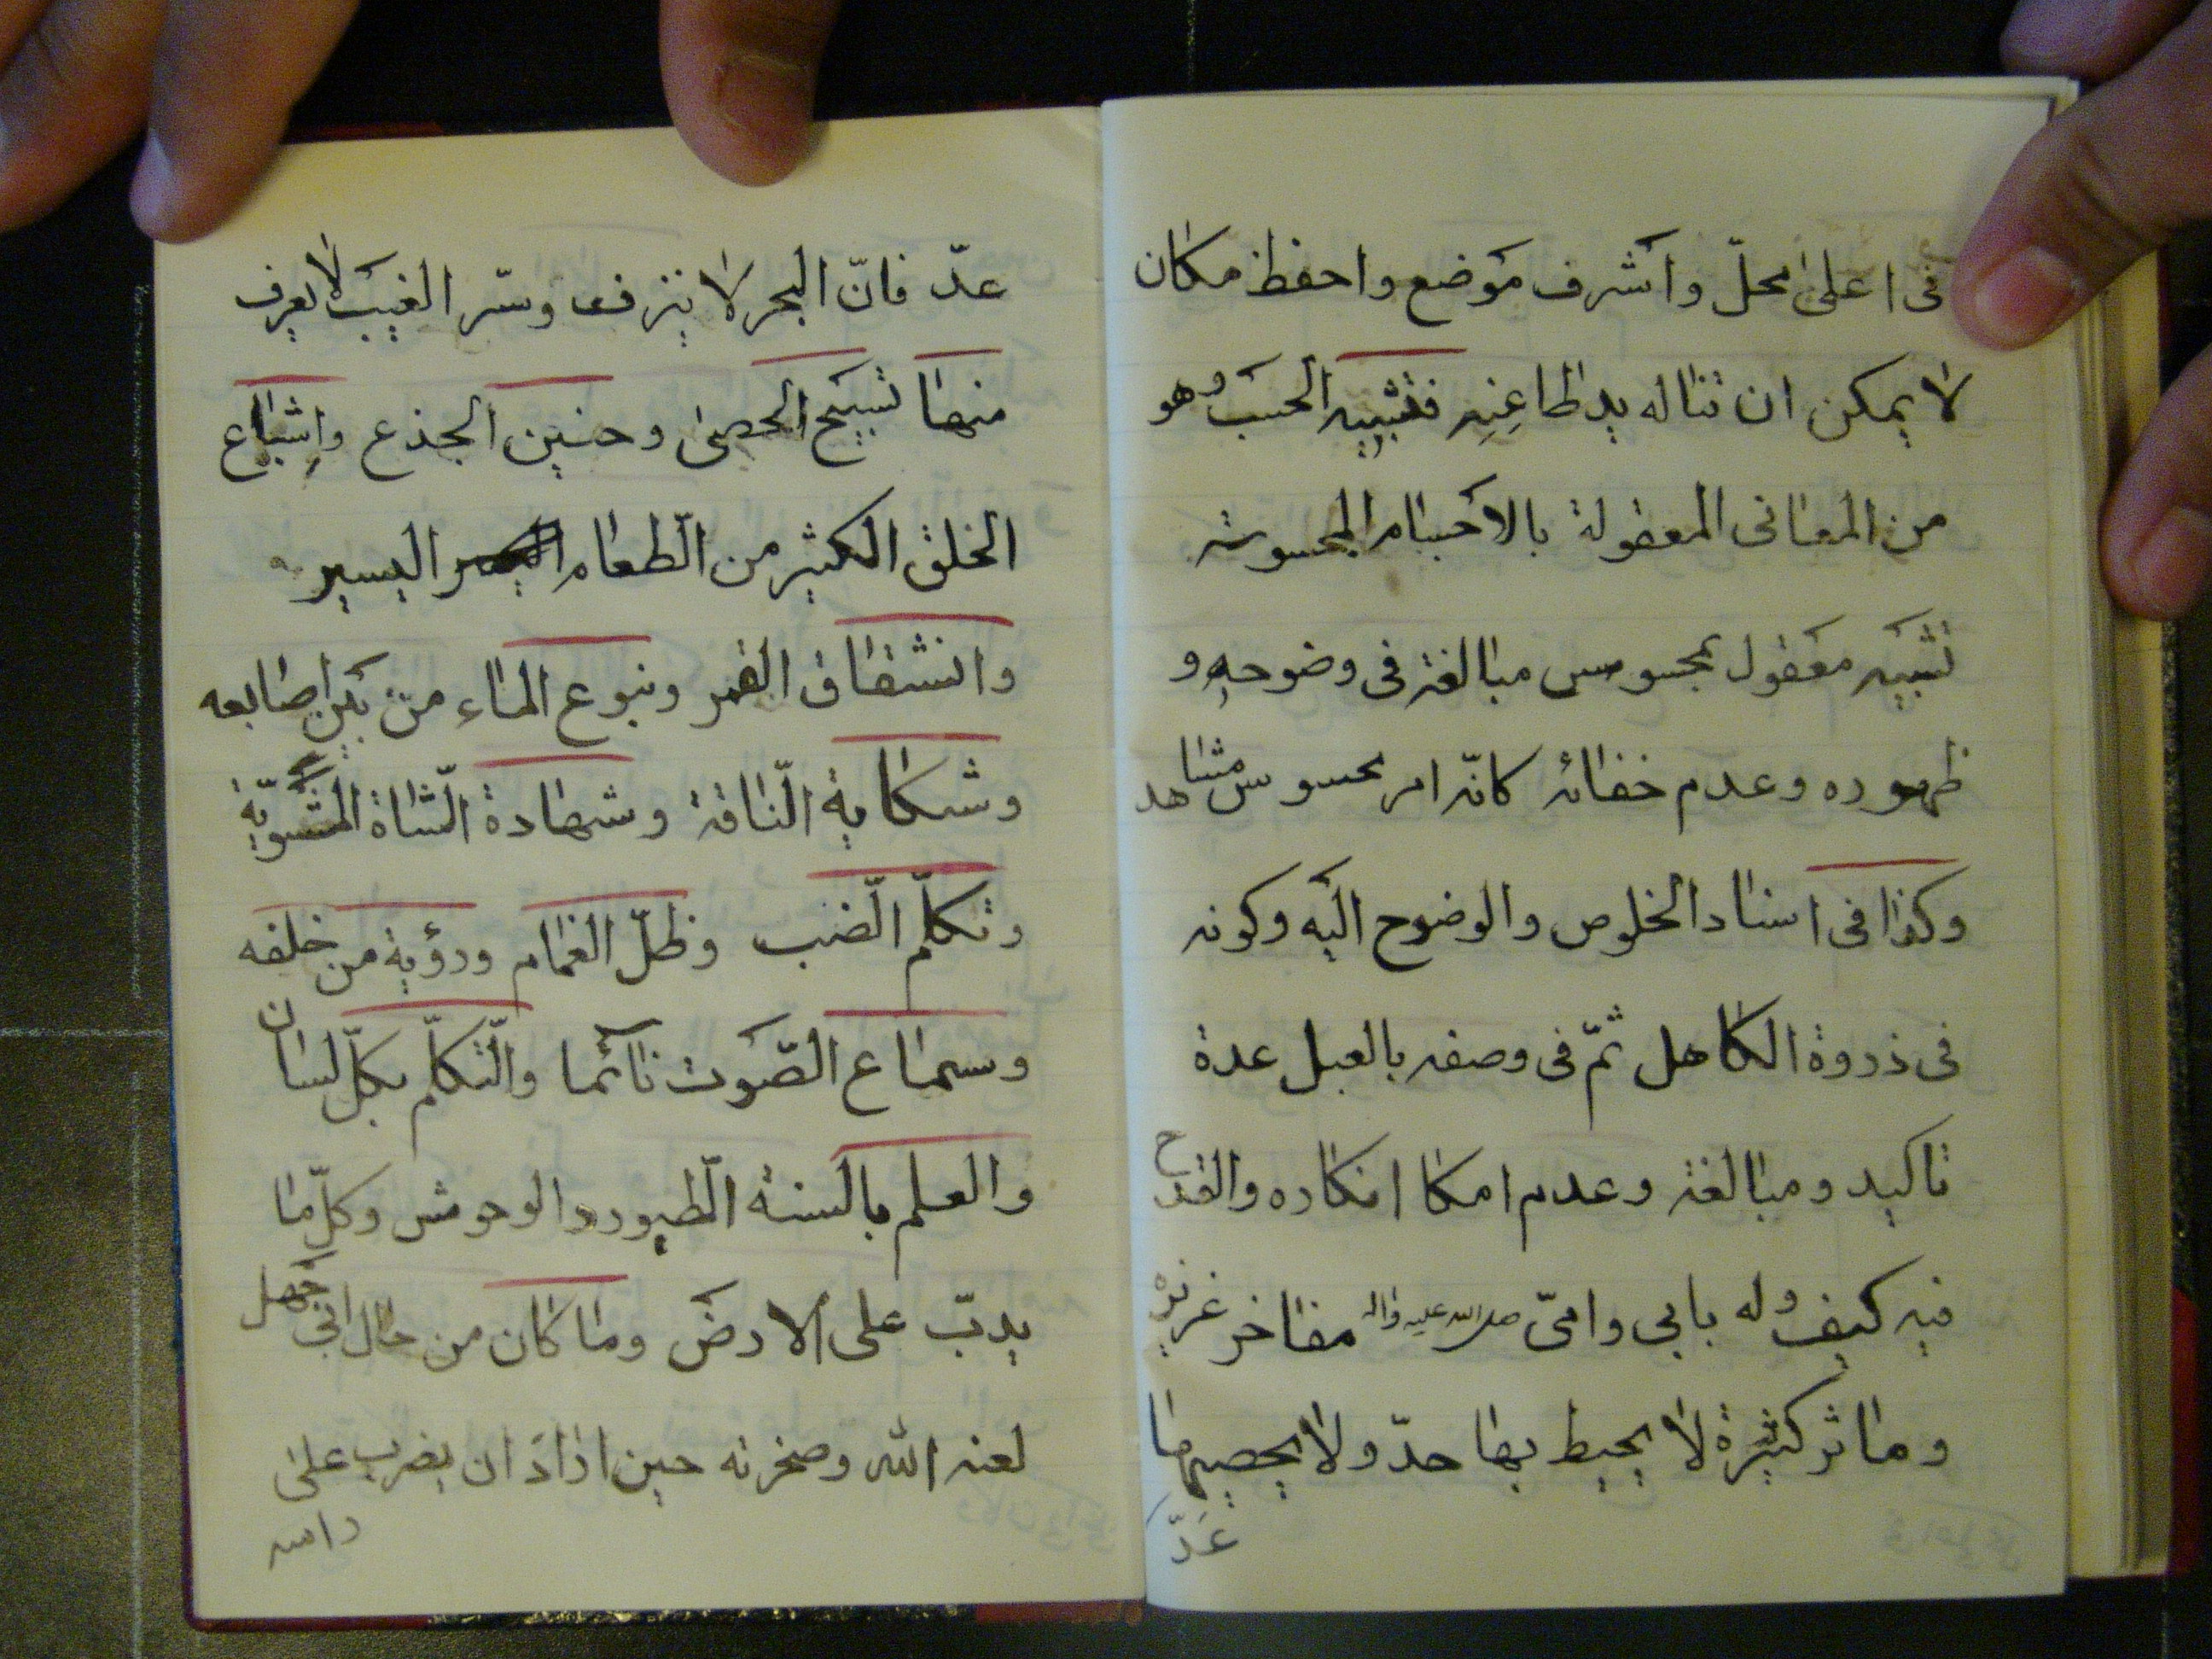 فى اعلىٰ محلّ واشرف موضع واحفظ مكان
لا يمكن ان تناله يد طاعِنِه فتشبيه الحسب وهو
من المعانى المعقولة بالاجسام المحسوسة
تشبيه معقول بمحسوس مبالغة فى وضوحه و
ظهوره وعدم خفائه كانّه امر محسوس مشاهد
وكذا فى اسناد الخلوص والوضوح اليه وكونه
فى ذروة الكاهل ثمّ فى وصفه بالعبل عدة
تاكيد ومبالغة وعدم امكا انكاره والقدح
فيه كيف وله بابى وامّى صلى الله عليه واله مفاخر غزيره
وماثر كثيرة لا يحيط بها حدّ ولا يحصيها
عَدّ
عدّ فانّ البحر لا ينزف وسّر الغيب لا يعرف
منها تسبيح الحصىٰ وحنين الجذع وإشباع
الخلق الكثير من الطّعام اليسير
وانشقاق القمر ونبوع الماء من بين اصابعه
وشكاية النّاقة وشهادة الشّاة المشويّة
وتكلّم الضّب وظلّ الغمام ورؤية من خلفه
وسماع الصّوت نائما والتّكلّم بكلّ لسان
والعلم بالسنة الطّيور والوحوش وكلّ ما
يدبّ على الارض وما كان من حال ابى جهل
لعنه الله وصخرته حين اراد ان يضرب على
راسه